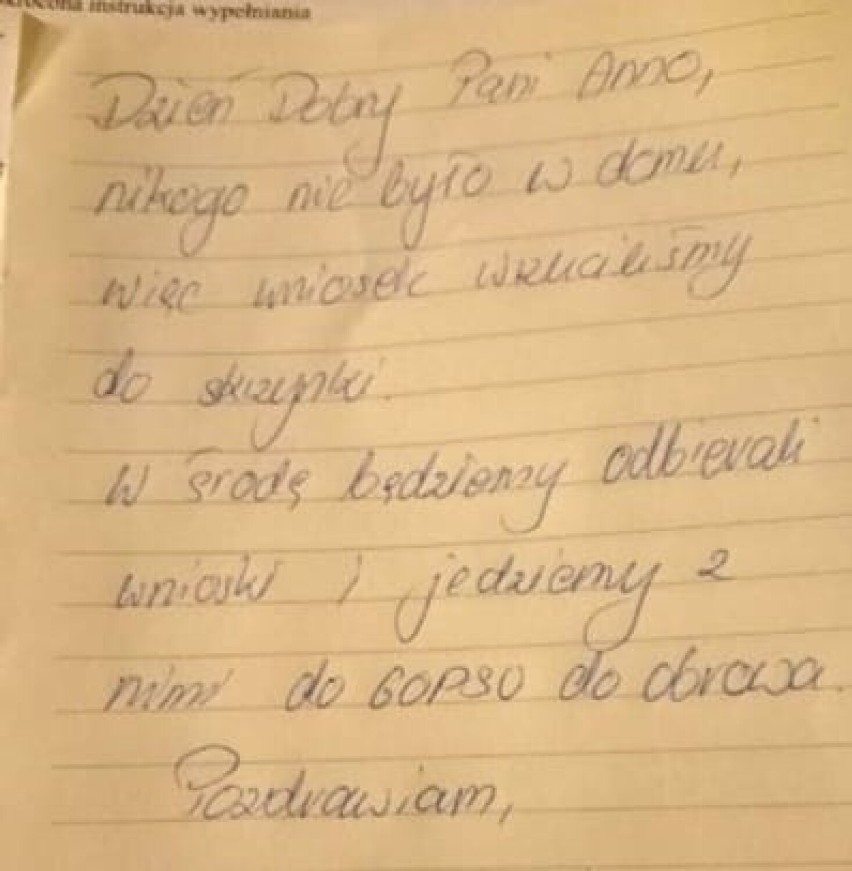 skrócona instrukcja wypełniania
Dzień Dobry Pani Anno,
nikogo nie było w domu,
więc wniosek wrzuciliśmy
do skrzynki.
W środę będziemy odbierali
wnioski i jedziemy z
nimi do GOPSU do obrowa.
Pozdrawiam,